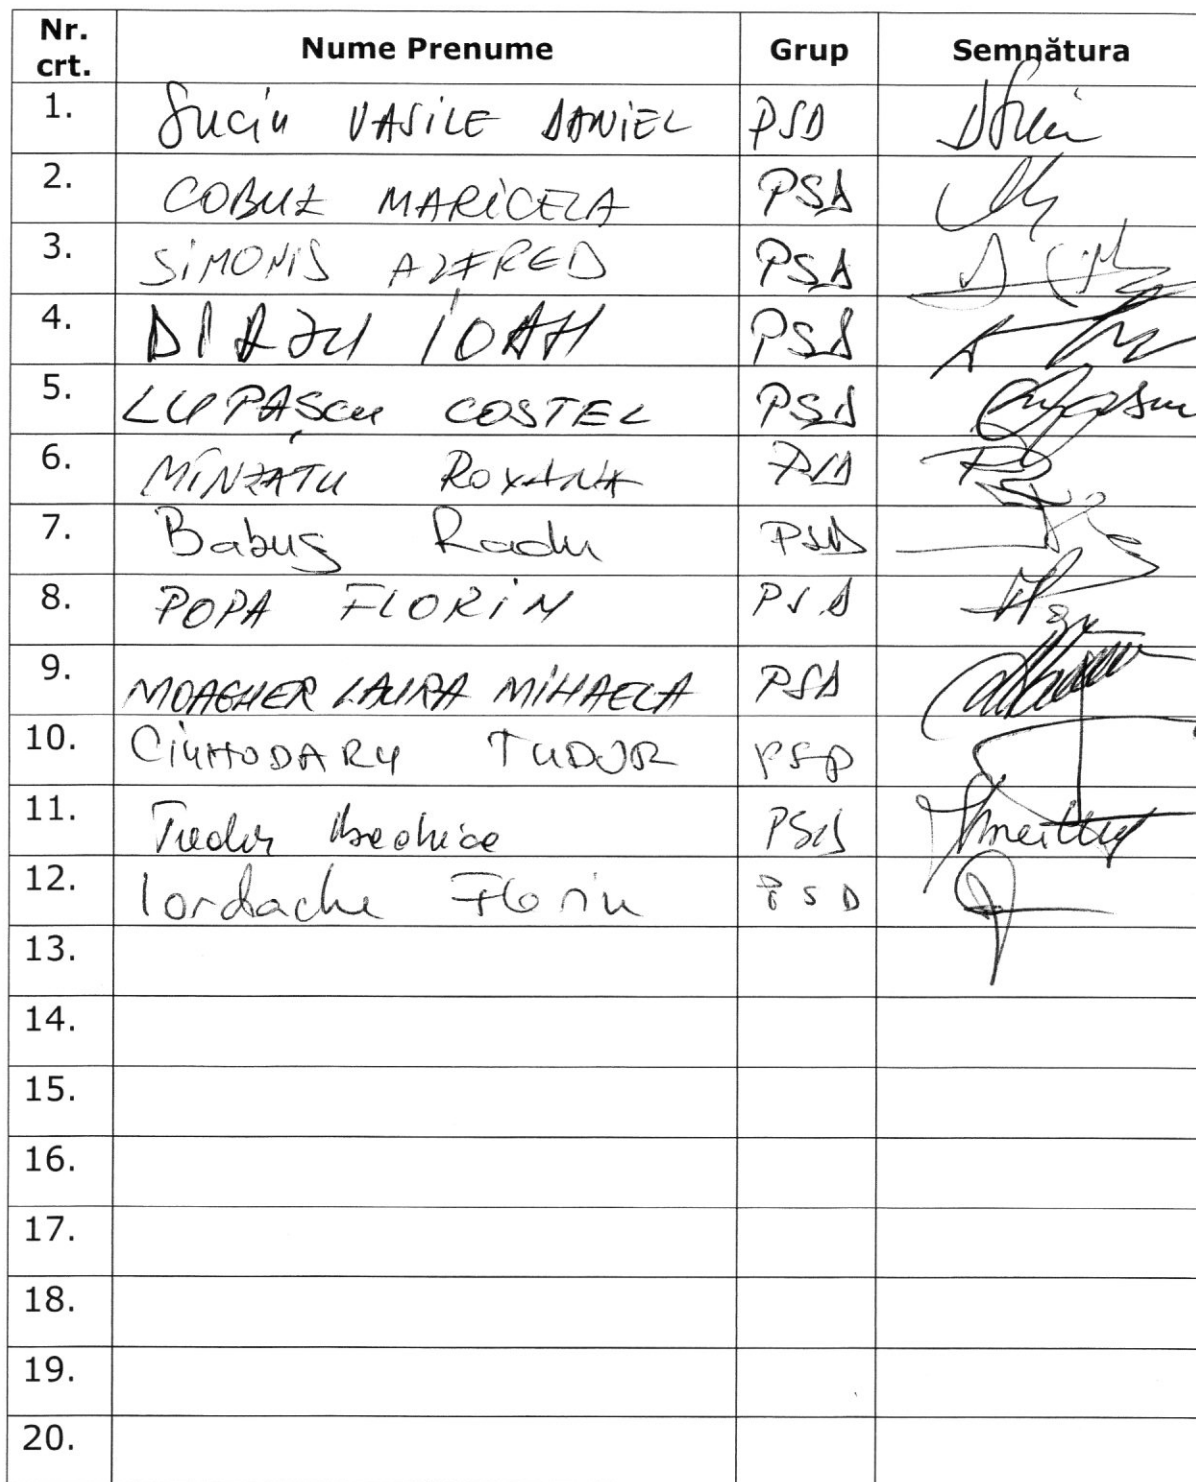 Nr. crt. Nume Prenume Grup Semnătura
1. Suciu VASILE DANIEL PSD
2. COBUZ MARICELA PSD
3. SIMONIS ALFRED PSD
4. DIRZU IOAN PSD
5. LUPAȘCU COSTEL PSD
6. MÎNZATU ROXANA PSD
7. Babuș Radu PSD
8. POPA FLORIN PSD
9. MOAGHER LAURA MIHAELA PSD
10. CIUHODARU TUDOR PSD
11. Tudor PSD
12. Iordache Florin PSD
13.
14.
15.
16.
17.
18.
19.
20.